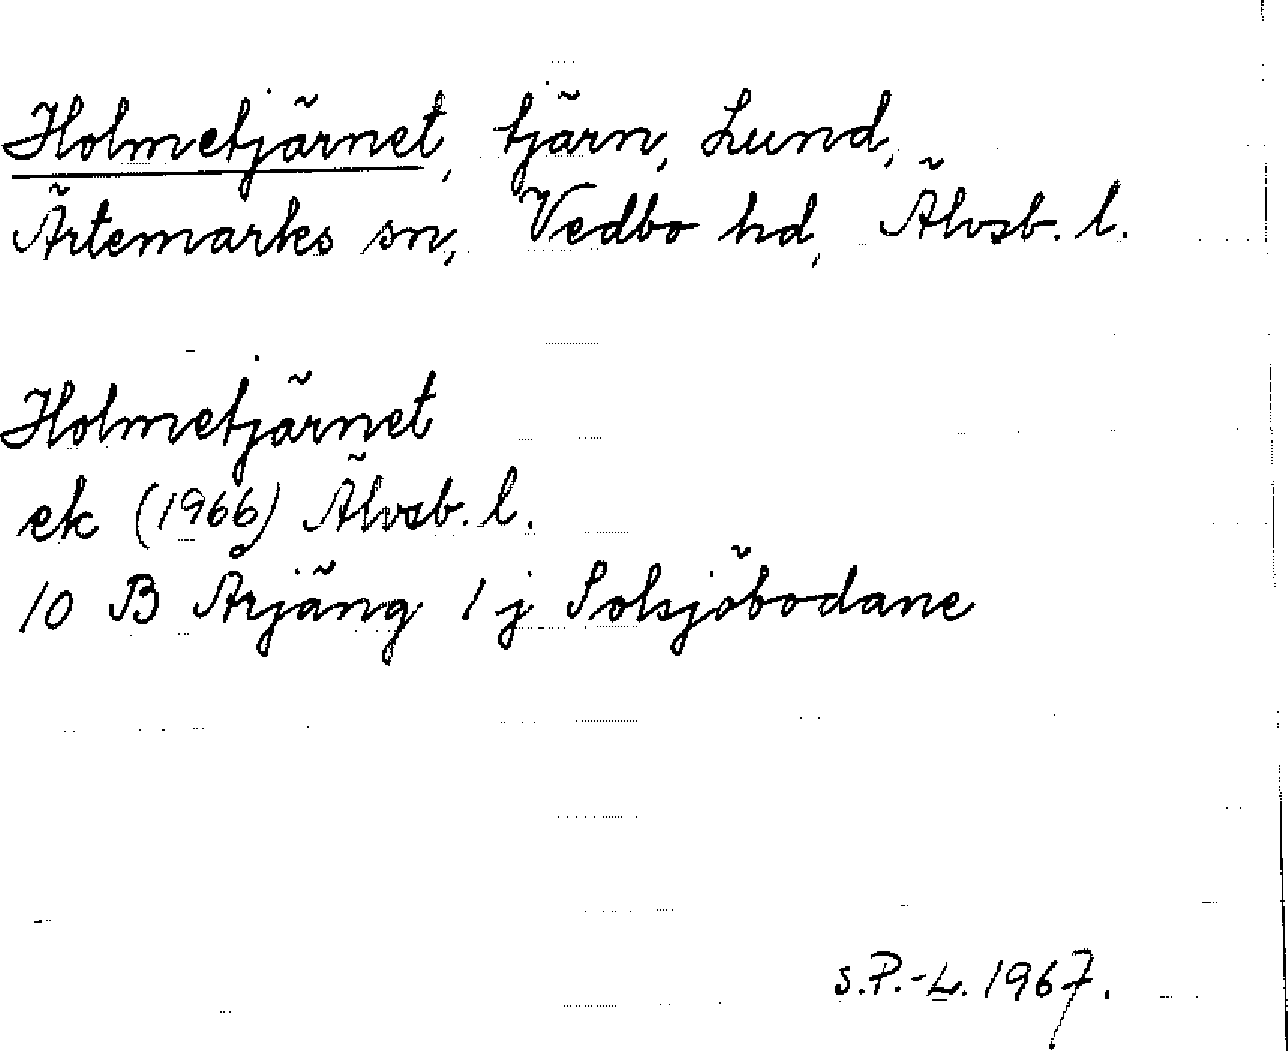 Holmetjärnet, tjärn, Lund,
Ärtemarks sn, Vedbo hd, Älvsb. l.
Holmetjärnet
ek (1966) Älvsb. l.
10 B Årjäng 1 j Solsjöbodane
s.P.-L. 1967.